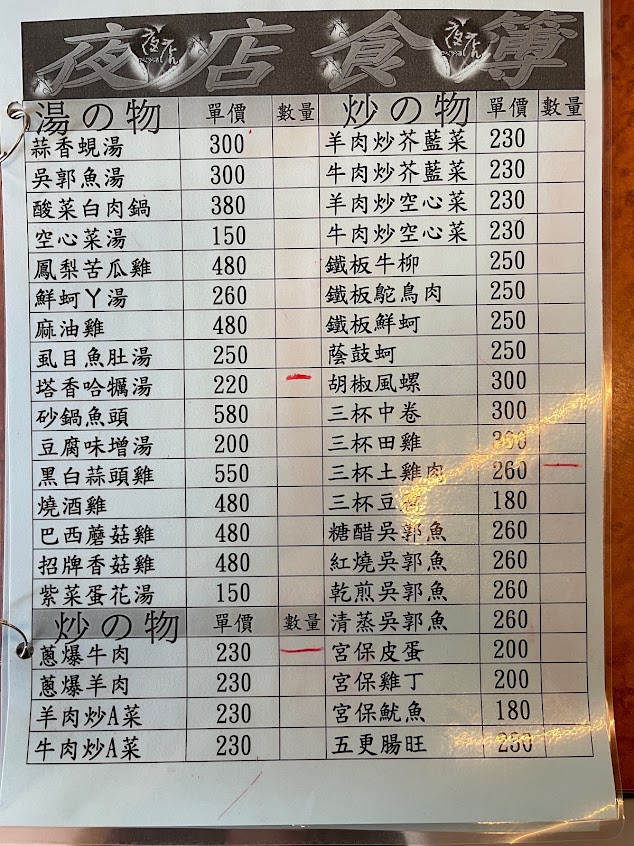 夜店食簿
湯の物 單價 數量
蒜香蜆湯 300
吳郭魚湯 300
酸菜白肉鍋 380
空心菜湯 150
鳳梨苦瓜雞 480
鮮蚵丫湯 260
麻油雞 480
虱目魚肚湯 250
塔香哈犡湯 220
砂鍋魚頭 580
豆腐味增湯 200
黑白蒜頭雞 550
燒酒雞 480
巴西蘑菇雞 480
招牌香菇雞 480
紫菜蛋花湯 150
炒の物 單價 數量
蔥爆牛肉 230
蔥爆羊肉 230
羊肉炒A菜 230
牛肉炒A菜 230
炒の物 單價 數量
羊肉炒芥藍菜 230
牛肉炒芥藍菜 230
羊肉炒空心菜 230
牛肉炒空心菜 230
鐵板牛柳 250
鐵板鴕鳥肉 250
鐵板鮮蚵 250
蔭鼓蚵 250
胡椒風螺 300
三杯中卷 300
三杯田雞 300
三杯土雞肉 260
三杯豆 180
糖醋吳郭魚 260
紅燒吳郭魚 260
乾煎吳郭魚 260
清蒸吳郭魚 260
宮保皮蛋 200
宮保雞丁 200
宮保魷魚 180
五更腸旺 230